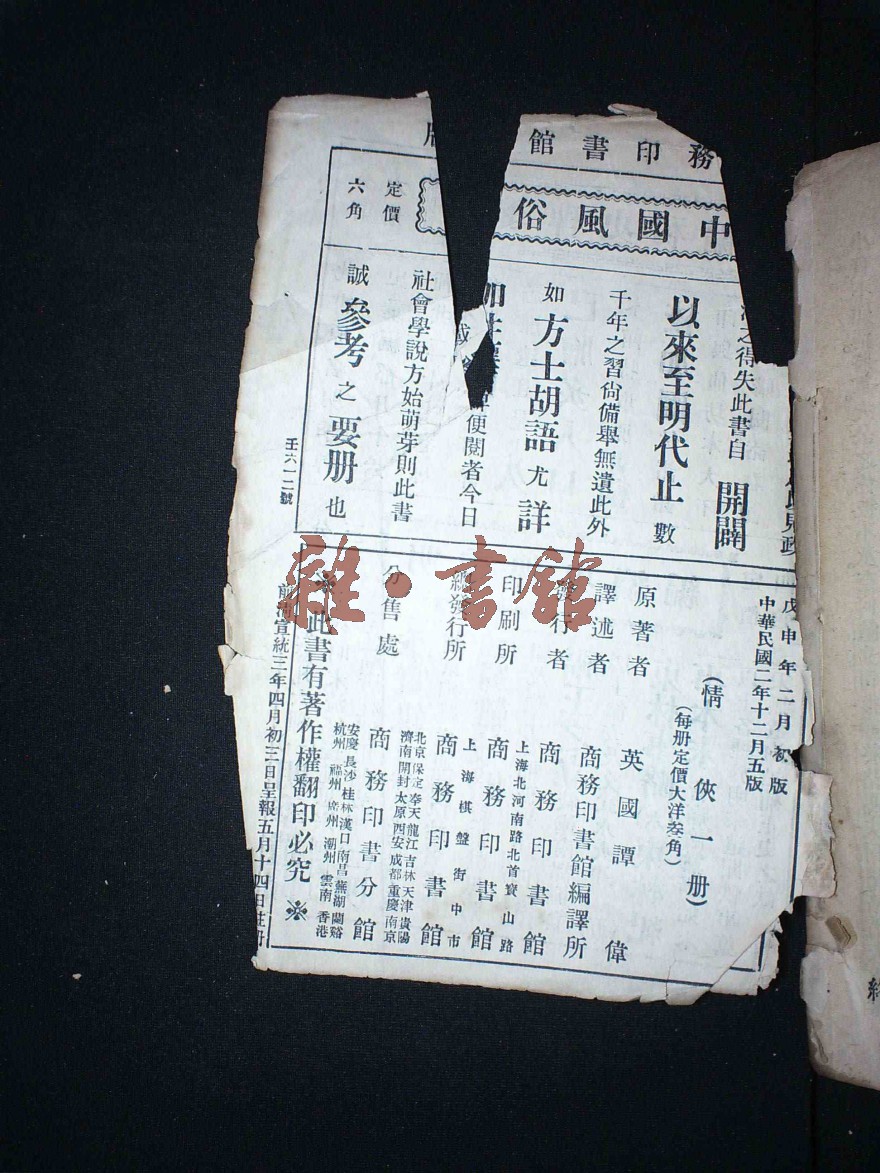 務印書館
中國風俗
定價
六角
得失此書自 開闢
以來至明代止 數
千年之習尙備舉無遺此外
如 方士胡語 尤 詳
便閱者今日
社會學說方始萌芽則此書
誠 參考 之 要册 也
壬六一二號
戊申年二月初版
中華民國二年十二月五版
(情俠一册)
(每册定價大洋叁角)
原著者 英國譚偉
譯述者 商務印書館編譯所
發行者 商務印書館
上海北河南路北首寶山路
印刷所 商務印書館
上海棋盤街中市
總發行所 商務印書館
北京保定奉天龍江吉林天津貴陽
濟南開封太原西安成都重慶南京
分售處 商務印書分館
安慶長沙桂林漢口南昌蕪湖蘭谿
杭州福州廣州潮州雲南香港
※此書有著作權翻印必究※
前清宣統三年四月初三日呈報五月十四日註册
雜·書館